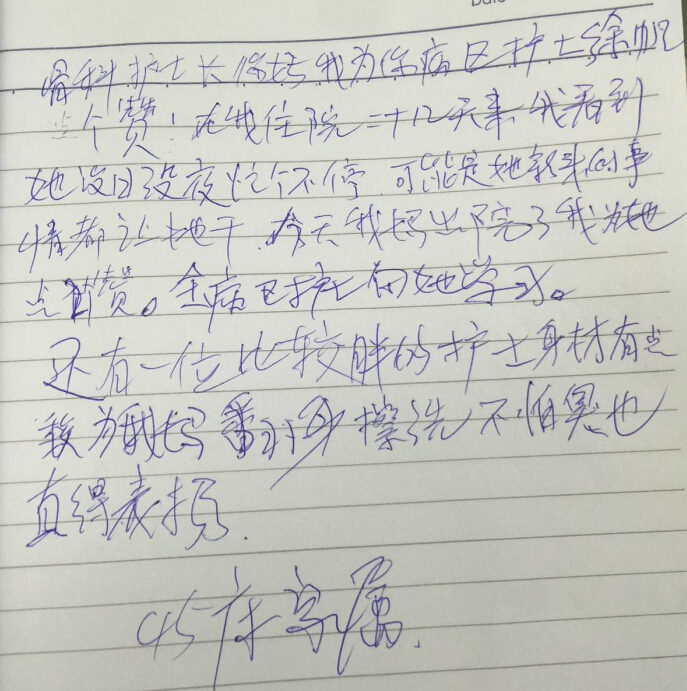 Date
骨科护士长你好,我为你病区护士徐帆
点个赞!在我住院二十几天来,我看到
她没日没夜忙个不停,可能是她新来的事
情都让她干,今天我妈出院了我为她
点个赞。全病区护士向她学习。
还有一位比较胖的护士身材有点
为我妈翻身擦洗不怕臭也
直得表扬.
45床家属.